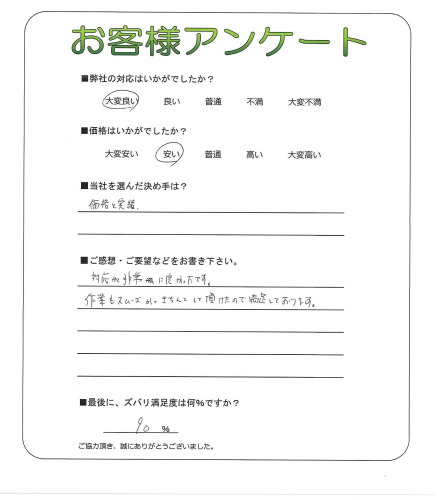 お客様アンケート
■弊社の対応はいかがでしたか？
大変良い 良い 普通 不満 大変不満
■価格はいかがでしたか？
大変安い 安い 普通 高い 大変高い
■当社を選んだ決め手は？
価格と実績.
■ご感想・ご要望などをお書き下さい。
対応が非常に良かったです。
作業もスムーズかつきちんとして頂けたので満足しております。
■最後に、ズバリ満足度は何％ですか？
90 ％
ご協力頂き、誠にありがとうございました。